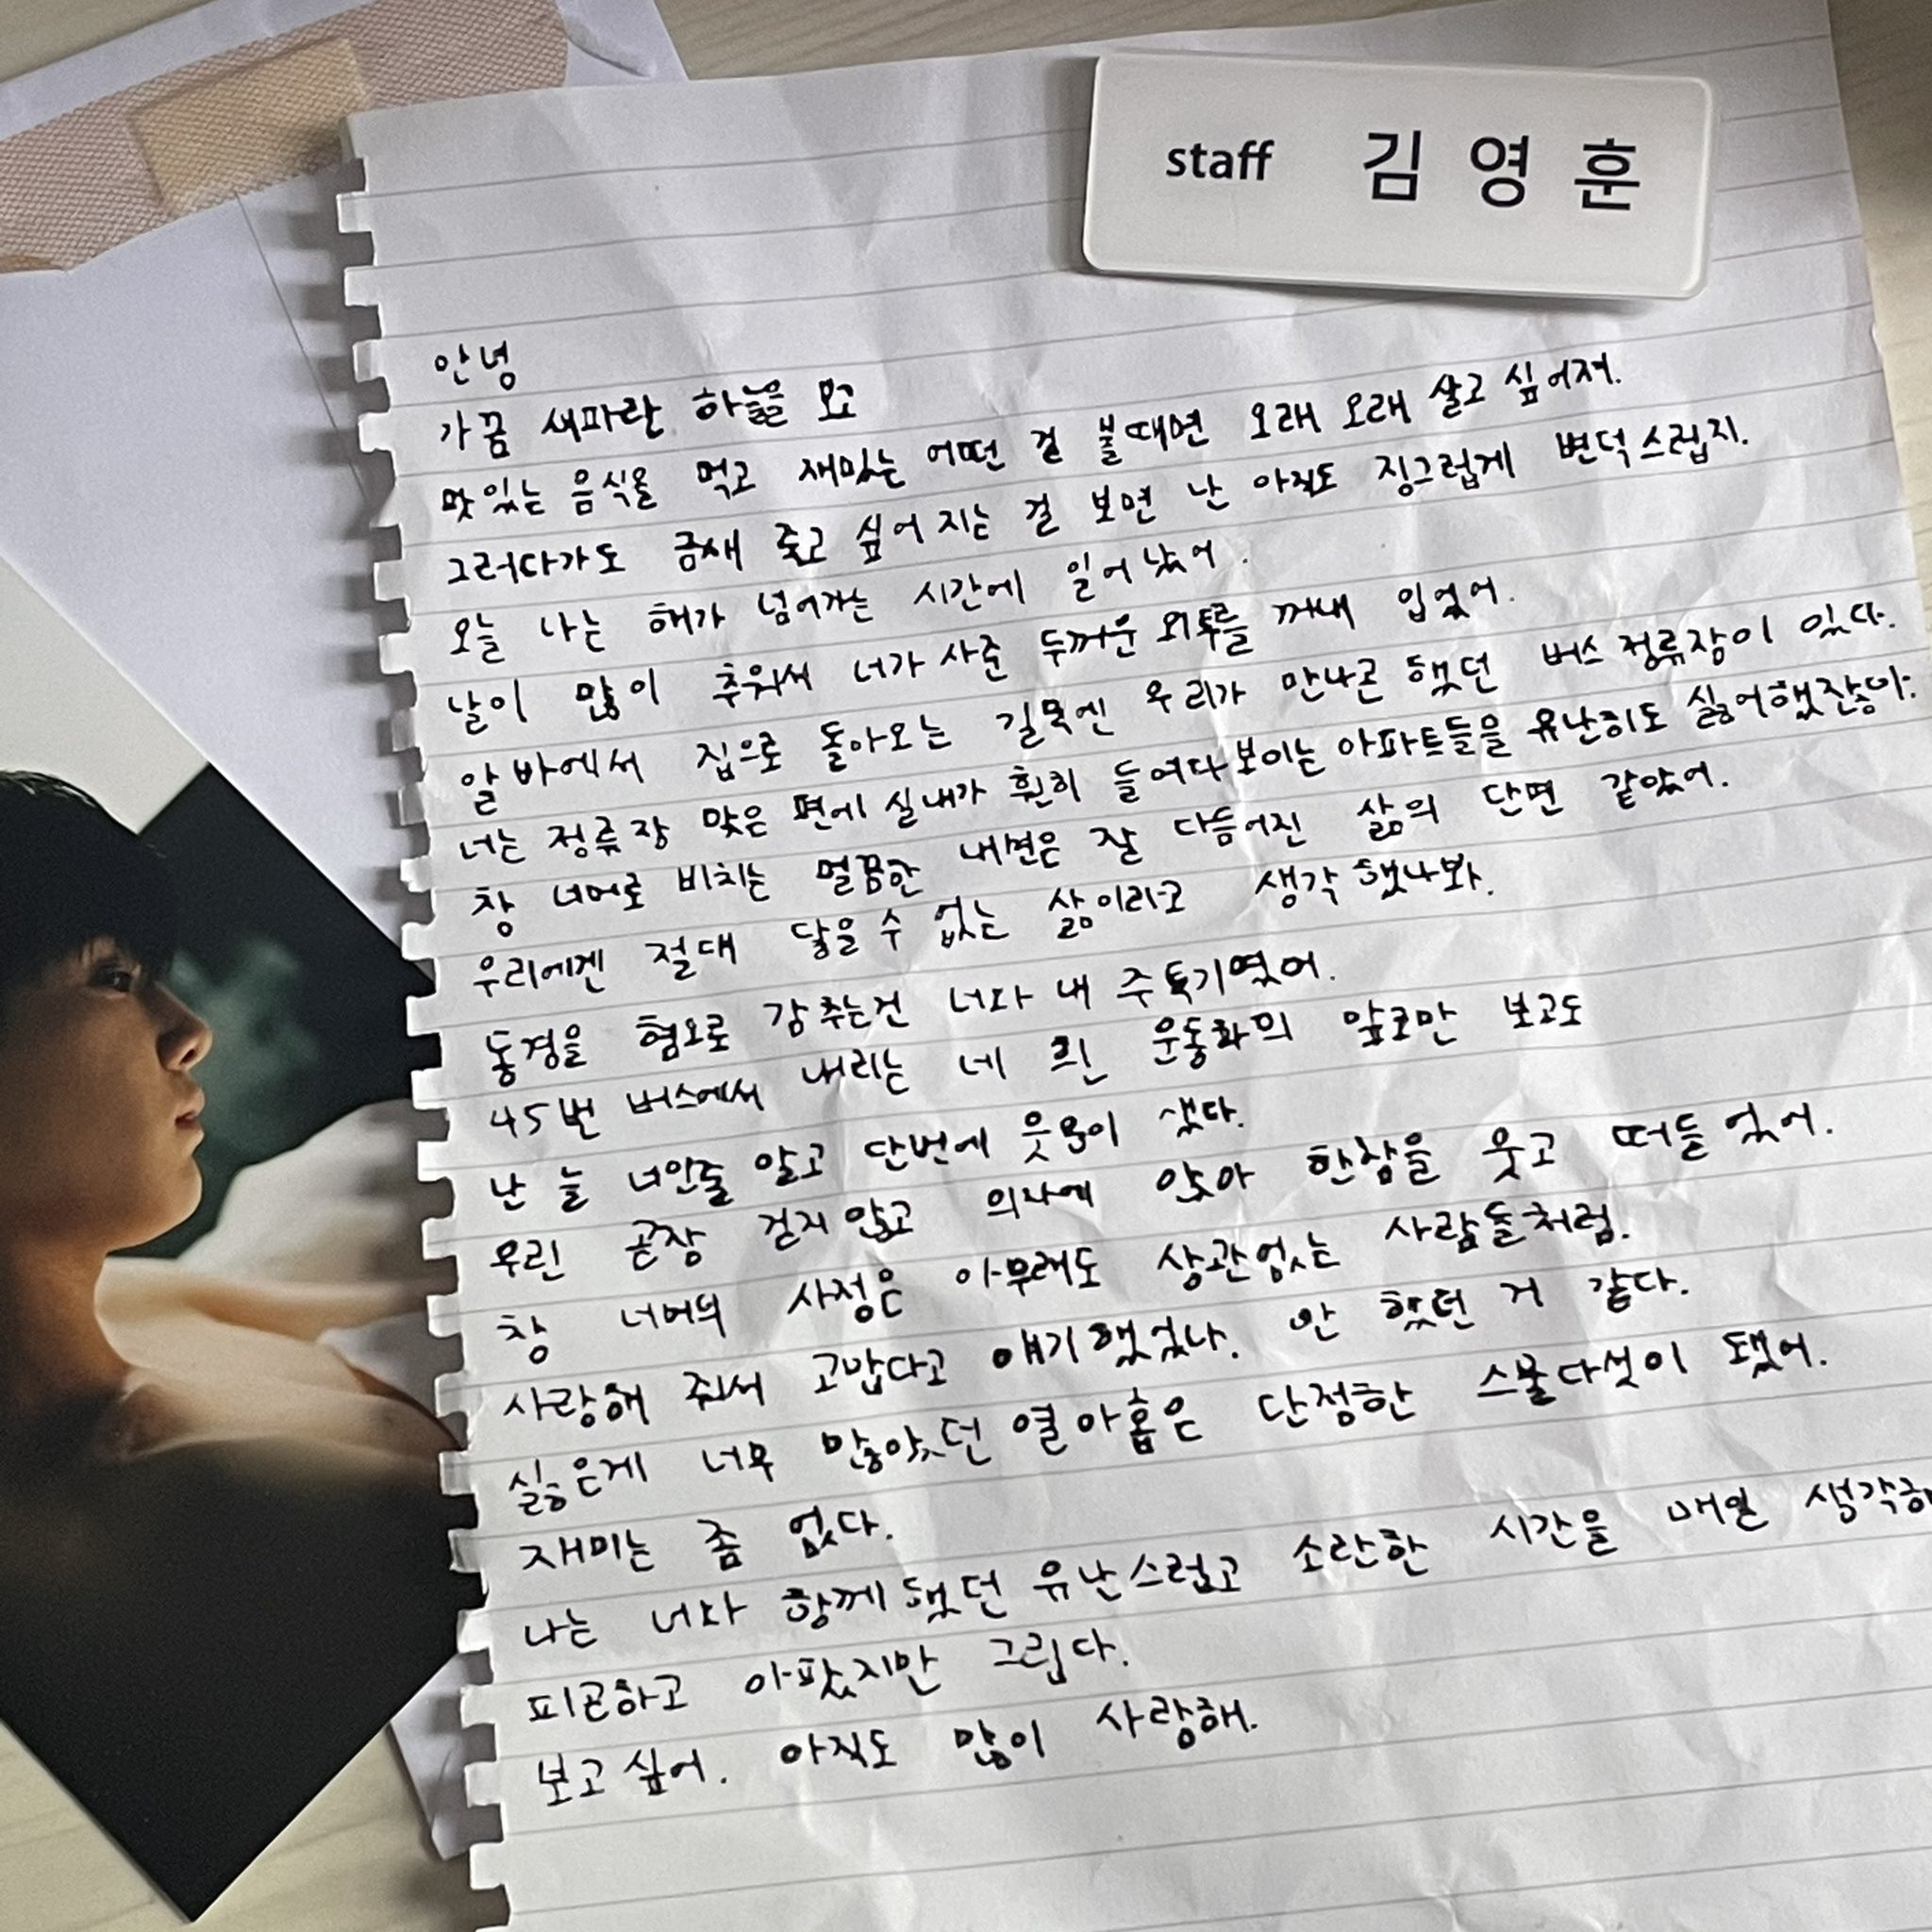 staff 김영훈
안녕
가끔 새파란 하늘을 보고
맛있는 음식을 먹고 재밌는 어떤 걸 볼때면 오래 오래 살고 싶어져.
그러다가도 금새 죽고 싶어 지는 걸 보면 난 아직도 징그럽게 변덕스럽지.
오늘 나는 해가 넘어가는 시간에 일어났어.
날이 많이 추워서 너가 사준 두꺼운 외투를 꺼내 입었어.
알바에서 집으로 돌아오는 길목엔 우리가 만나곤 했던 버스 정류장이 있다.
너는 정류장 맞은 편에 실내가 훤히 들여다보이는 아파트들을 유난히도 싫어했잖아.
창 너머로 비치는 멀끔한 내면은 잘 다듬어진 삶의 단면 같았어.
우리에겐 절대 닿을 수 없는 삶이라고 생각했나봐.
동경을 혐오로 감추는건 너와 내 주특기였어.
45번 버스에서 내리는 네 흰 운동화의 앞코만 보고도
난 늘 너인줄 알고 단번에 웃음이 샜다.
우린 곧장 걷지 않고 의자에 앉아 한참을 웃고 떠들었어.
창 너머의 사정은 아무래도 상관없는 사람들처럼.
사랑해 줘서 고맙다고 얘기했었나. 안 했던 거 같다.
싫은게 너무 많았던 열아홉은 단정한 스물다섯이 됐어.
재미는 좀 없다.
나는 너와 함께했던 유난스럽고 소란한 시간을 매일 생각해
피곤하고 아팠지만 그립다.
보고싶어. 아직도 많이 사랑해.